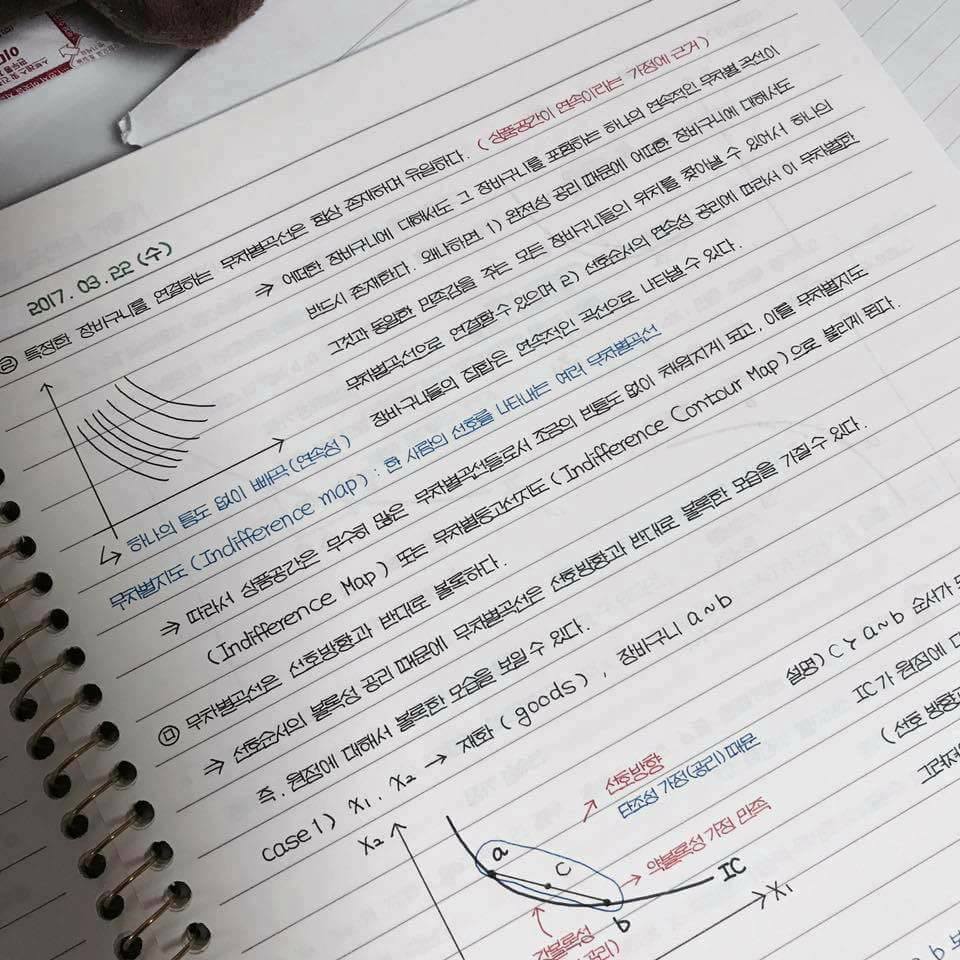 2017. 03. 22 (수)
㉣ 특정한 장바구니를 연결하는 무차별곡선은 항상 존재하며 유일하다. (상품공간이 연속이라는 가정에 근거)
⇒ 어떠한 장바구니에 대해서도 그 장바구니를 포함하는 하나의 연속적인 무차별 곡선이
반드시 존재한다. 왜냐하면 1) 완전성 공리 때문에 어떠한 장바구니에 대해서도
그것과 동일한 만족감을 주는 모든 장바구니들의 위치를 찾아낼 수 있어서 하나의
무차별곡선으로 연결할 수 있으며 2) 선호순서의 연속성 공리에 따라서 이 무차별한
장바구니들의 집합은 연속적인 곡선으로 나타낼 수 있다.
↳ 하나의 틈도 없이 빼곡 (연속성)
무차별지도 (Indifference map) : 한 사람의 선호를 나타내는 여러 무차별곡선
⇒ 따라서 상품공간은 무수히 많은 무차별곡선들로서 조금의 빈틈도 없이 채워지게 되고, 이를 무차별지도
(Indifference Map) 또는 무차별등고선지도 (Indifference Contour Map)으로 불리게 된다.
㉤ 무차별곡선은 선호방향과 반대로 볼록하다.
⇒ 선호순서의 볼록성 공리 때문에 무차별곡선은 선호방향과 반대로 볼록한 모습을 가질 수 있다.
즉, 원점에 대해서 볼록한 모습을 보일 수 있다.
case 1) x₁, x₂ → 재화 (goods), 장바구니 a~b
설명) C ≻ a~b 순서가
IC가 원점에
(선호 방향
X₂
a
c
b
IC
X₁
↗ 선호방향
단조성 가정(공리) 때문
→ 약볼록성 가정 만족
강볼록성
공리)